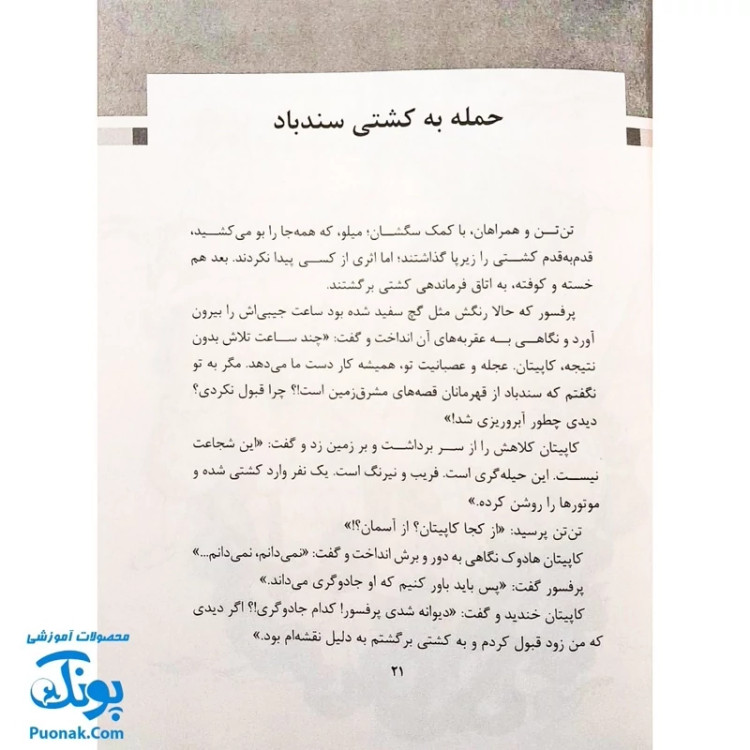 حمله به کشتی سندباد
تن‌تن و همراهان، با کمک سگشان؛ میلو، که همه‌جا را بو می‌کشید،
قدم‌به‌قدم کشتی را زیرپا گذاشتند؛ اما اثری از کسی پیدا نکردند. بعد هم
خسته و کوفته، به اتاق فرماندهی کشتی برگشتند.
پرفسور که حالا رنگش مثل گچ سفید شده بود ساعت جیبی‌اش را بیرون
آورد و نگاهی به عقربه‌های آن انداخت و گفت: «چند ساعت تلاش بدون
نتیجه، کاپیتان. عجله و عصبانیت تو، همیشه کار دست ما می‌دهد. مگر به تو
نگفتم که سندباد از قهرمانان قصه‌های مشرق‌زمین است!؟ چرا قبول نکردی؟
دیدی چطور آبروریزی شد!»
کاپیتان کلاهش را از سر برداشت و بر زمین زد و گفت: «این شجاعت
نیست. این حیله‌گری است. فریب و نیرنگ است. یک نفر وارد کشتی شده و
موتورها را روشن کرده.»
تن‌تن پرسید: «از کجا کاپیتان؟ از آسمان؟!»
کاپیتان هادوک نگاهی به دور و برش انداخت و گفت: «نمی‌دانم، نمی‌دانم...»
پرفسور گفت: «پس باید باور کنیم که او جادوگری می‌داند.»
کاپیتان خندید و گفت: «دیوانه شدی پرفسور! کدام جادوگری!؟ اگر دیدی
که من زود قبول کردم و به کشتی برگشتم به دلیل نقشه‌ام بود.»
۲۱
محصولات آموزشی
پونک
Puonak.Com